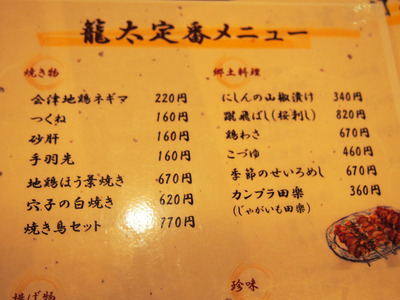 龍太定番メニュー
焼き物
会津地鶏ネギマ 220円
つくね 160円
砂肝 160円
手羽先 160円
地鶏ほう葉焼き 670円
穴子の白焼き 620円
焼き鳥セット 770円
郷土料理
にしんの山椒漬け 340円
蹴飛ばし(桜刺し) 820円
鶏わさ 670円
こづゆ 460円
季節のせいろめし 670円
カンプラ田楽 360円
(じゃがいも田楽)
揚げ物
珍味